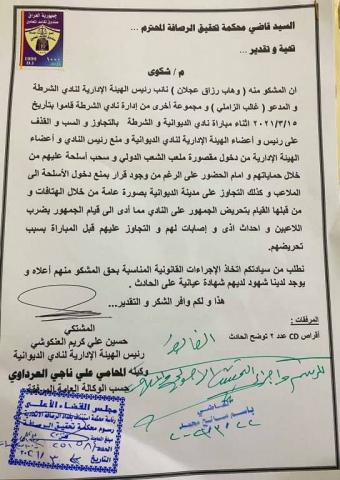 جمهورية العراق
السيد قاضي محكمة تحقيق الرصافة المحترم ...
تحية و تقدير ...
م / شكوى
ان المشكو منه ( وهاب رزاق عجلان ) نائب رئيس الهيئة الإدارية لنادي الشرطة
و المدعو ( غالب الزاملي ) و مجموعة أخرى من إدارة نادي الشرطة قاموا بتأريخ
٢٠٢١/٣/١٥ اثناء مباراة نادي الديوانية و الشرطة بالتجاوز و السب و القذف
على رئيس و أعضاء الهيئة الإدارية لنادي الديوانية و منع رئيس النادي و أعضاء
الهيئة الإدارية من دخول مقصورة ملعب الشعب الدولي و سحب أسلحة عليهم من
خلال حماياتهم و امام الحضور على الرغم من وجود قرار بمنع دخول الأسلحة الى
الملاعب و كذلك التجاوز على مدينة الديوانية بصورة عامة من خلال الهتافات و
من قبلها القيام بتحريض الجمهور على النادي مما أدى الى قيام الجمهور بضرب
اللاعبين و احداث اذى و إصابات لهم و التجاوز عليهم قبل المباراة بسبب
تحريضهم.
نطلب من سيادتكم اتخاذ الإجراءات القانونية المناسبة بحق المشكو منهم أعلاه و
يوجد لدينا شهود لديهم شهادة عيانية على الحادث .
هذا و لكم وافر الشكر و التقدير...
المرفقات :
أقراص CD عدد ٢ توضح الحادث
المشتكي
حسين علي كريم العنكوشي
رئيس الهيئة الإدارية لنادي الديوانية
وكيله المحامي علي ناجي العرداوي
حسب الوكالة العامة المرفقة
القاضي
باسم صالح محمد
مجلس القضاء الأعلى
رئاسة محكمة استئناف بغداد الرصافة الاتحادية
رسوم محكمة تحقيق الرصافة